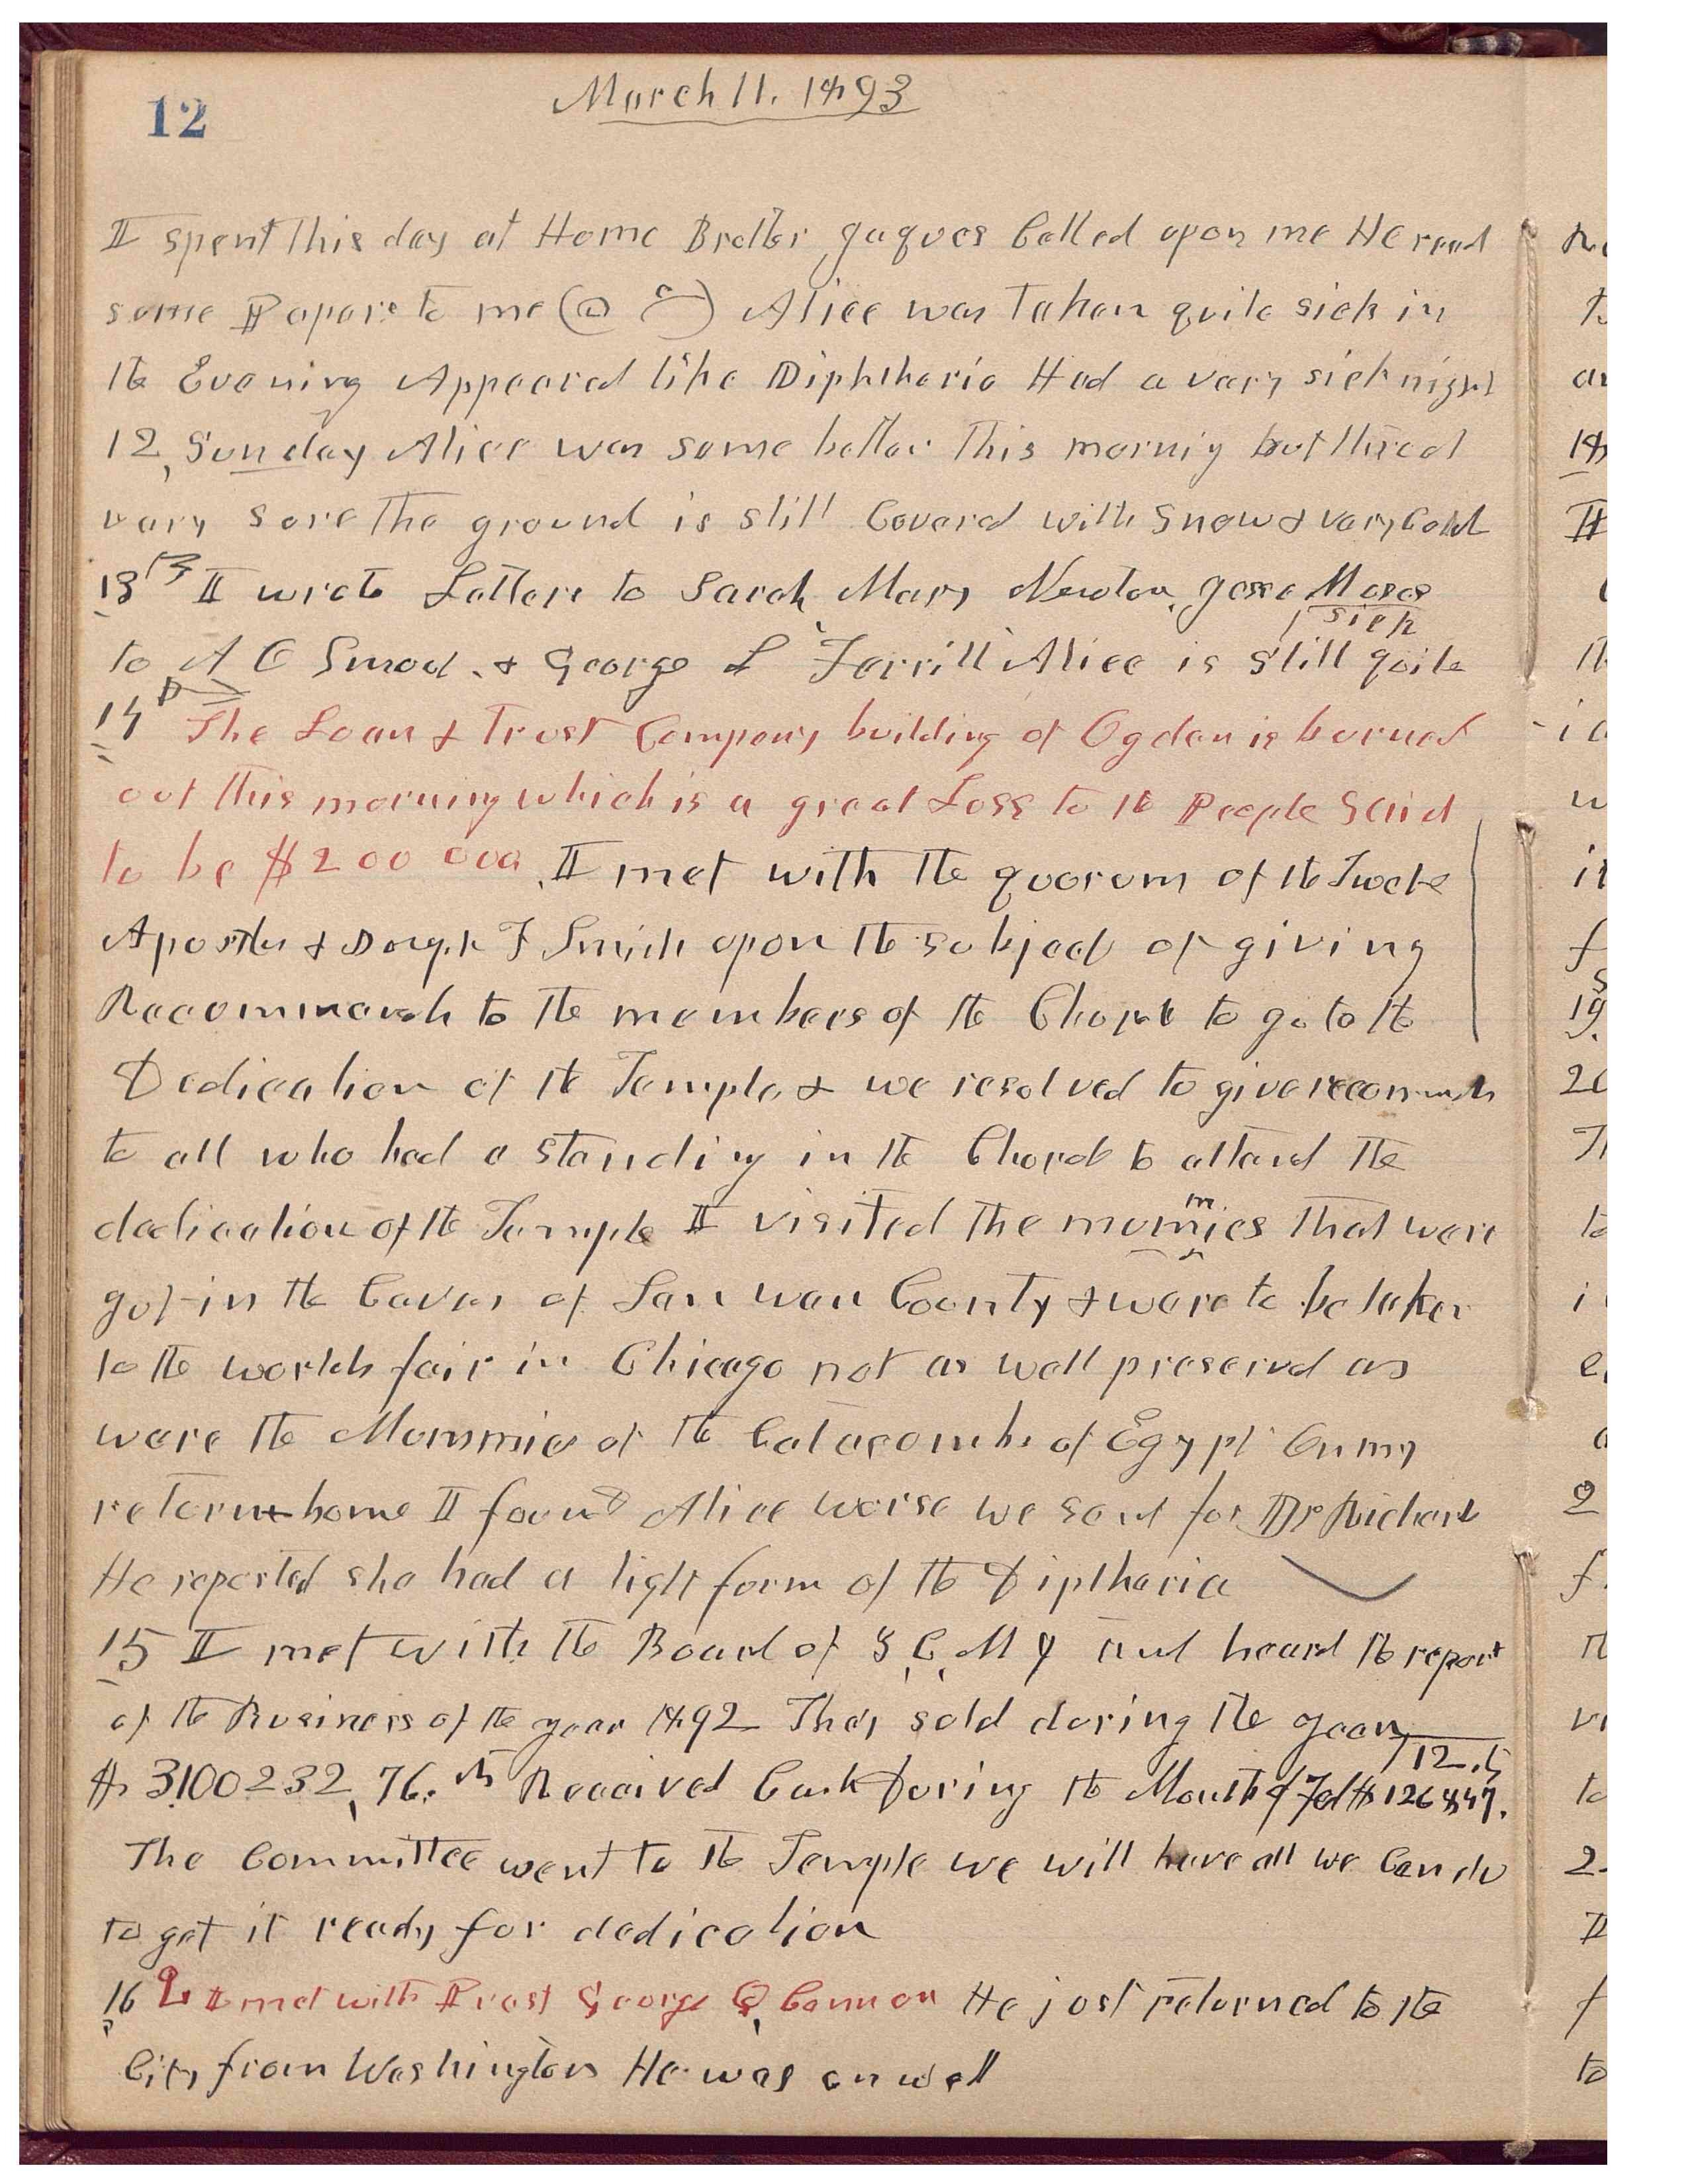 12
March 11. 1893
I spent this day at Home Brother Jaques Called upon me He read
some Papers to me Alice was taken quite sick in
the Evening Appeared like Diphtheria Had a vary sick night
12, Sunday Alice was some better this morning but throat
vary sore The ground is still Covered with Snow & vary Cold
13 I wrote Letters to Sarah, Mary Newton, Jesse Moses
to A O Smoot & George L Farrill Alice is still quite sick
14 The Loan & Trust Company building of Ogden is burned
out this morning which is a great Loss to the People Said
to be $200 000. I met with the quorum of the Twelve
Apostles & Joseph F Smith upon the subject of giving
Recommends to the members of the Church to go to the
Dedication of the Temple, & we resolved to give recommds
to all who had a standing in the Church to attend the
dedication of the Temple I visited the mummies that were
got in the Caves of San wan County & ware to be taken
to the worlds fair in Chicago not as well preserved as
ware the Mummies of the Catacombs of Egypt On my
return home I found Alice worse we sent for Dr Richards
He reported she had a light form of the Diptheria
15 I met with the Board of Z, C, M I and heard the report
of the Business of the year 1892 They sold during the year
12.5
$ 3100232, 76. Received Cash During the Month of Feb $126847.
The Committee went to the Temple we will have all we Can do
to get it ready for dedication
16 I met with Prest George Q Cannon He just returned to the
City from Washington He was unwell